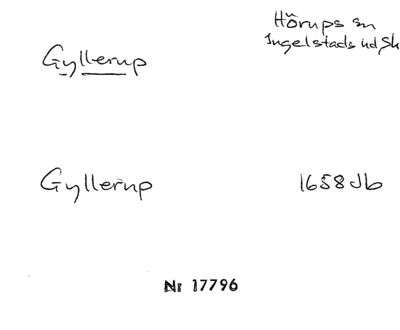 Hörups sn
Ingelstads hd Sk
Gyllerup
Gyllerup 1658 Jb
Nr 17796